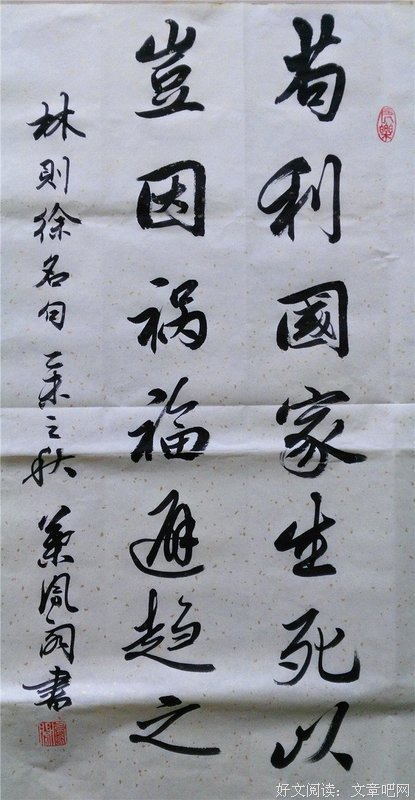 苟利國家生死以
豈因祸福避趋之
林則徐名句 乙未之秋 書
長樂
好文阅读：文章吧网